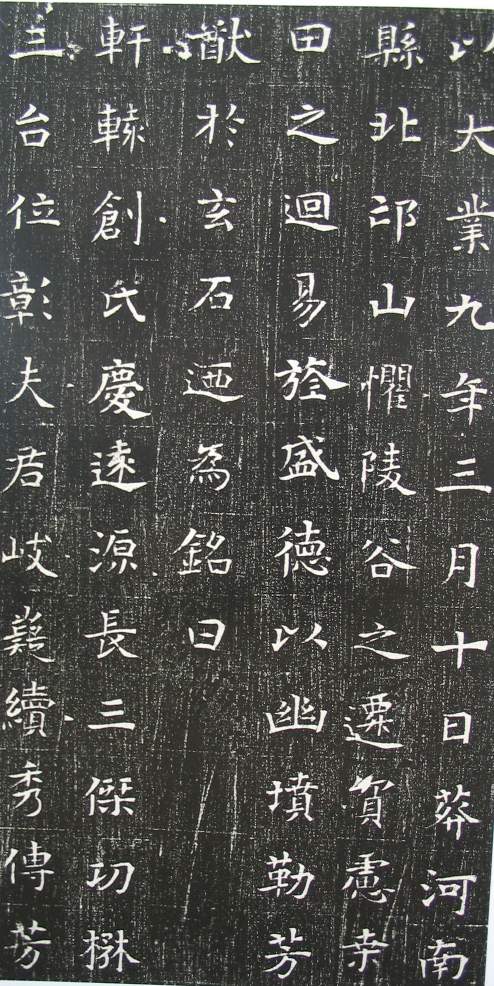 以大業九年三月十日葬河南
縣北邙山懼陵谷之遷賀慮桒
田之迴易旌盛德以幽墳勒芳
猷於玄石迺為銘曰
軒轅創氏慶遠源長三傑功楙
三台位彰夫君岐嶷續秀傳芳